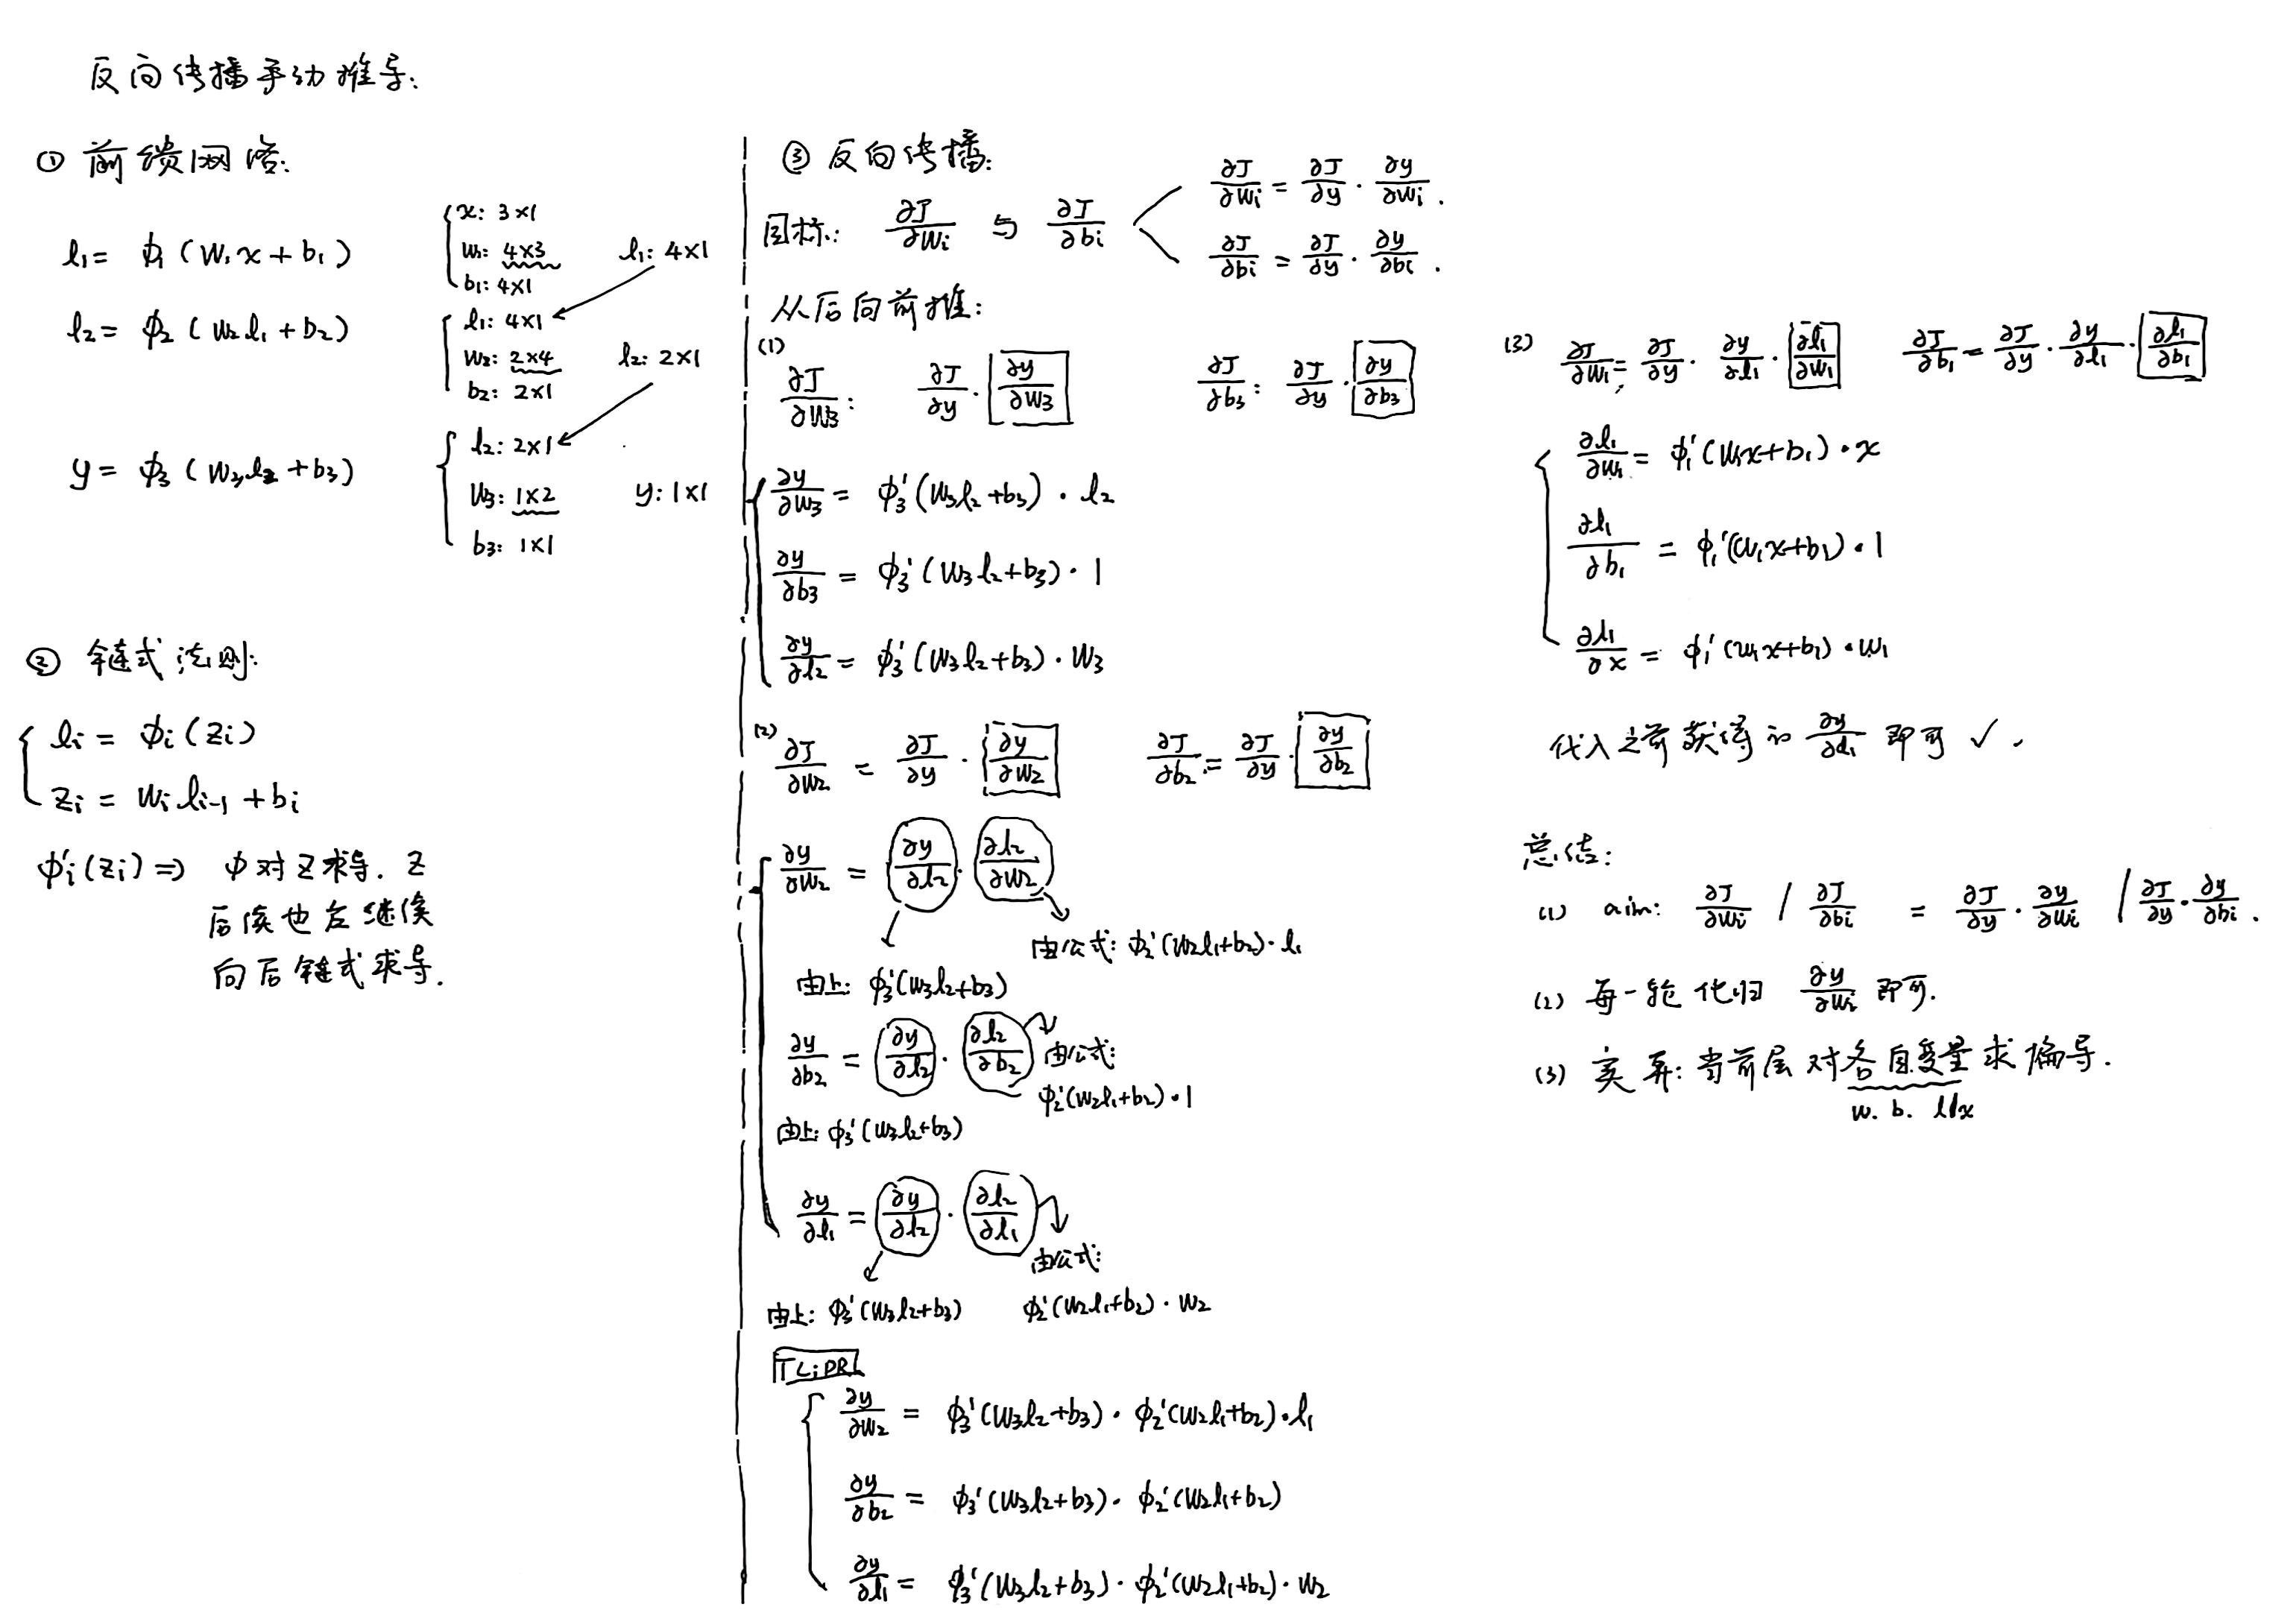 反向传播手动推导:
① 前馈网络:
l₁ = ϕ₁ (W₁x + b₁)
x: 3×1
W₁: 4×3
b₁: 4×1
l₁: 4×1
l₂ = ϕ₂ (W₂l₁ + b₂)
l₁: 4×1
W₂: 2×4
b₂: 2×1
l₂: 2×1
y = ϕ₃ (W₃l₂ + b₃)
l₂: 2×1
W₃: 1×2
b₃: 1×1
y: 1×1
② 链式法则:
lᵢ = ϕᵢ(zᵢ)
zᵢ = Wᵢlᵢ₋₁ + bᵢ
ϕ'ᵢ(zᵢ) ⇒ ϕ对z求导. z
后续也在继续
向后链式求导.
③ 反向传播:
目标: ∂J/∂Wᵢ 与 ∂J/∂bᵢ
∂J/∂Wᵢ = ∂J/∂y · ∂y/∂Wᵢ.
∂J/∂bᵢ = ∂J/∂y · ∂y/∂bᵢ.
从后向前推:
(1)
∂J/∂W₃: ∂J/∂y · ∂y/∂W₃ ∂J/∂b₃: ∂J/∂y · ∂y/∂b₃
∂y/∂W₃ = ϕ₃'(W₃l₂+b₃) · l₂
∂y/∂b₃ = ϕ₃'(W₃l₂+b₃) · 1
∂y/∂l₂ = ϕ₃'(W₃l₂+b₃) · W₃
(2) ∂J/∂W₂ = ∂J/∂y · ∂y/∂W₂ ∂J/∂b₂ = ∂J/∂y · ∂y/∂b₂
∂y/∂W₂ = ∂y/∂l₂ · ∂l₂/∂W₂
由公式: ϕ₂'(W₂l₁+b₂) · l₁
由上: ϕ₃'(W₃l₂+b₃)
∂y/∂b₂ = ∂y/∂l₂ · ∂l₂/∂b₂ 由公式:
ϕ₂'(W₂l₁+b₂) · 1
由上: ϕ₃'(W₃l₂+b₃)
∂y/∂l₁ = ∂y/∂l₂ · ∂l₂/∂l₁
由公式:
由上: ϕ₃'(W₃l₂+b₃) ϕ₂'(W₂l₁+b₂) · W₂
TL;DR
∂y/∂W₂ = ϕ₃'(W₃l₂+b₃) · ϕ₂'(W₂l₁+b₂) · l₁
∂y/∂b₂ = ϕ₃'(W₃l₂+b₃) · ϕ₂'(W₂l₁+b₂)
∂y/∂l₁ = ϕ₃'(W₃l₂+b₃) · ϕ₂'(W₂l₁+b₂) · W₂
(3) ∂J/∂W₁ = ∂J/∂y · ∂y/∂l₁ · ∂l₁/∂W₁ ∂J/∂b₁ = ∂J/∂y · ∂y/∂l₁ · ∂l₁/∂b₁
∂l₁/∂W₁ = ϕ₁'(W₁x+b₁) · x
∂l₁/∂b₁ = ϕ₁'(W₁x+b₁) · 1
∂l₁/∂x = ϕ₁'(W₁x+b₁) · W₁
代入之前获得的 ∂y/∂l₁ 即可 ✓.
总结:
(1) aim: ∂J/∂Wᵢ / ∂J/∂bᵢ = ∂J/∂y · ∂y/∂Wᵢ / ∂J/∂y · ∂y/∂bᵢ.
(2) 每一轮化归 ∂y/∂Wᵢ 即可.
(3) 实算: 当前层对各自变量求偏导.
w. b. l/x